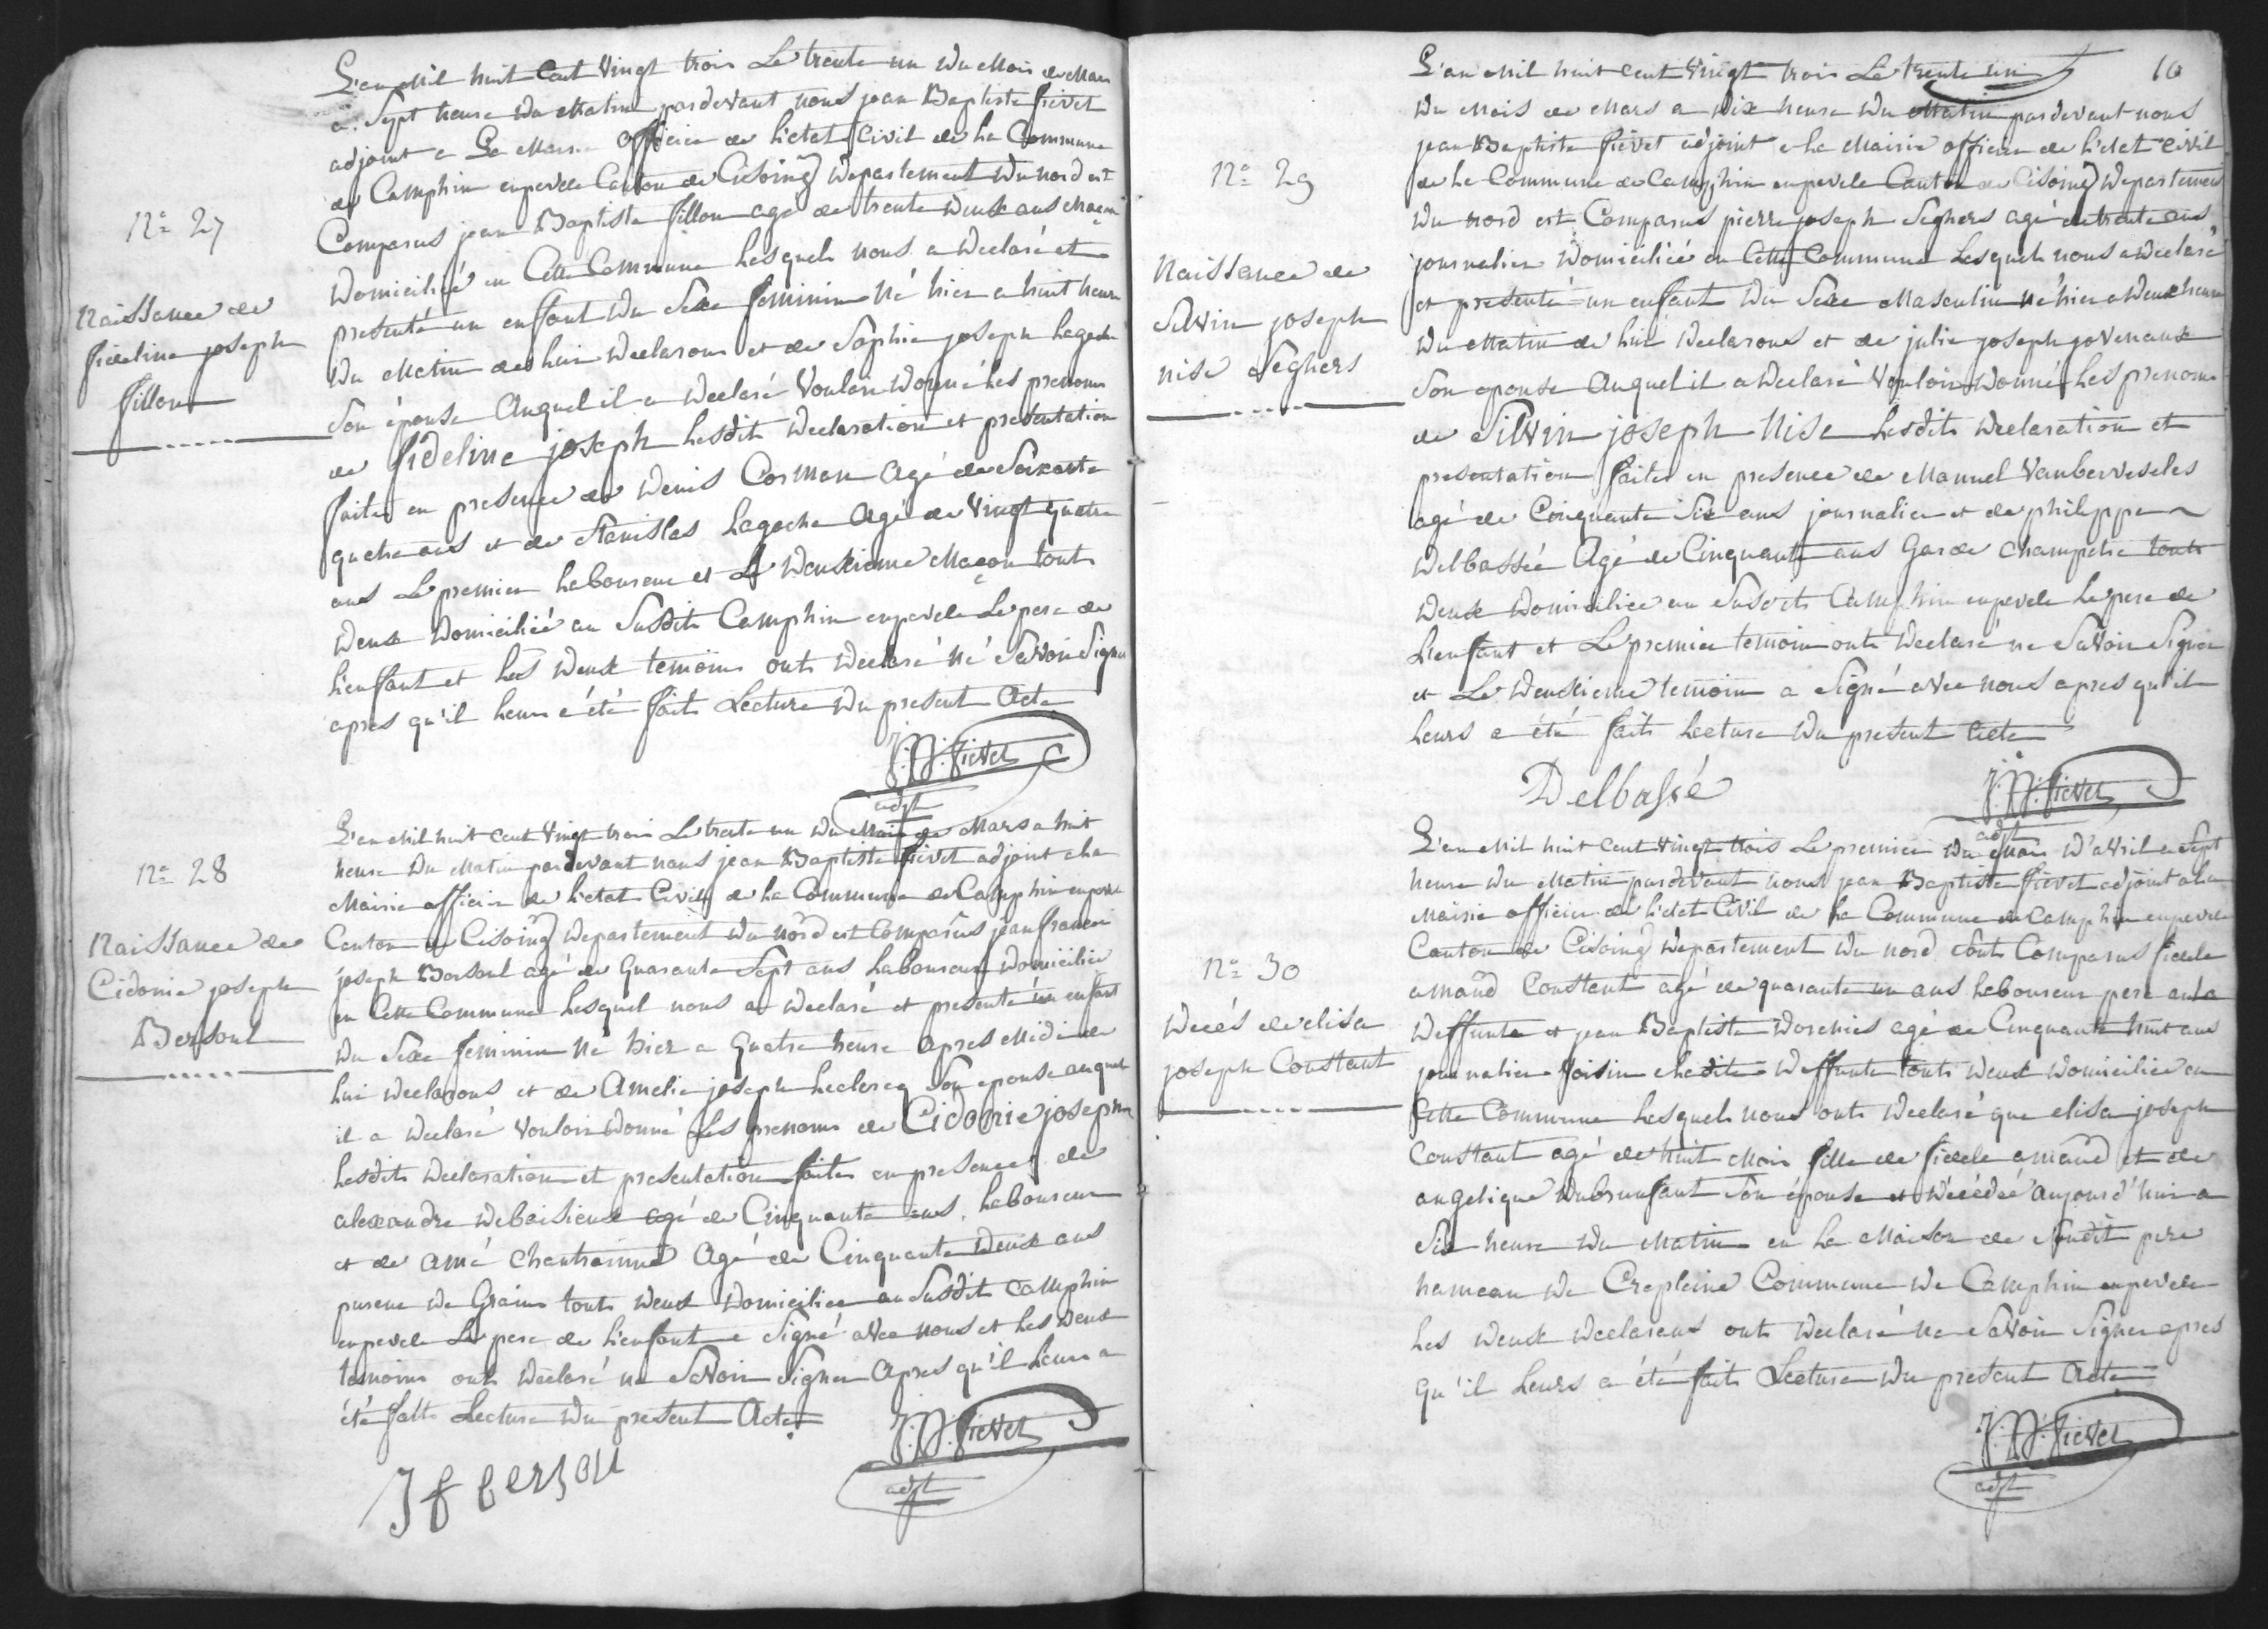 N.º 27
Naissance de
fideline joseph
fillon
L'an Mil huit Cent Vingt trois Le trente un du Mois de Mars
a Sept heure du Matin pardevant nous jean Baptiste fievet
adjoint a La Mairie officier de l'etat Civil de la Commune
de Camphin enpevele Canton de Cisoing Departement du nord est
Comparus jean Baptiste fillon agé de trente deux ans Maçon
Domicilié en Cette Commune Lesquels nous a declaré et
presenté un enfant du Sexe feminin Né hier a huit heure
du Matin de lui declarons et de Sophie joseph Lagache
Son épouse Auquel il a declaré Vouloir donné les prenoms
de fideline joseph Lesdits declaration et presentation
faites en presence de denis Cosman Agé de Soixante
quatre ans et de Stanislas Lagache Agé de Vingt quatre
ans Le premier Laboureur et Le deuxieme Maçon tout
deux domicilié au Susdit Camphin enpevele Le pere de
l'enfant et les deux temoins onts declaré né Savoir Signer
apres qu'il leurs a été fait Lecture du present Acte
J.B. fievet
adjt
N.º 28
Naissance de
Cidonie joseph
Bersout
L'an Mil huit cent Vingt trois Le trente un du Mois de Mars a huit
heure du Matin pardevant nous jean Baptiste fievet adjoint a la
Mairie officier de l'etat Civil de la Commune de Camphin enpevele
Canton de Cisoing Departement du nord est Comparus jean francois
joseph Bersout agé de Quarante Sept ans Laboureur domicilié
en Cette Commune Lesquel nous a declaré et presenté un enfant
du Sexe feminin Né hier a Quatre heure apres Midi de
lui declarons et de Amelie joseph Leclercq Son epouse auquel
il a declaré Vouloir donné Les prenoms de Cidonie joseph
Lesdits declaration et presentation faites en presence de
alexandre debaisieux agé de Cinquante ans Laboureur
et de amé Chantrainne Agé de Cinquante deux ans
pureur de Grains touts deux domicilié au Susdit Camphin
enpevele Le pere de l'enfant a Signé avec nous et les deux
temoins onts declaré ne Savoir Signer Apres qu'il leurs a
été faits Lecture du present Acte
J f bersou
J.B. fievet
adjt
10
N.º 29
Naissance de
Silvin joseph
nise Seghers
L'an Mil huit cent Vingt trois Le trente un
du Mois de Mars a dix heure du Matin pardevant nous
jean Baptiste fievet adjoint a la Mairie officier de l'etat civil
de la Commune de Camphin enpevele Canton de Cisoing Departement
du nord est Comparus pierre joseph Seghers agé de trente ans
journalier domicilié en Cette Commune Lesquels nous a declaré
et presenté un enfant du Sexe Masculin né hier a deux heure
du Matin de lui declarons et de julie joseph govenaux
Son epouse Auquel il a declaré Vouloir donné les prenoms
de Silvin joseph Nise Lesdits declaration et
presentation faites en presence de Manuel Vanberveseles
agé de Cinquante Six ans journalier et de philippe
delbassée Agé de Cinquante ans Garde Champetre touts
deux domicilié au Susdits Camphin enpevele Le pere de
l'enfant et Le premier temoin onts declaré ne Savoir Signer
et Le deuxieme temoin a Signé avec nous apres qu'il
leurs a été faits Lecture du present Acte
Delbassé
J.B. fievet
adjt
N.º 30
Decés de elisa
joseph Constant
L'an Mil huit cent Vingt trois Le premier du Mois d'avril a Sept
heure du Matin pardevant nous jean Baptiste fievet adjoint a la
Mairie officier de l'etat Civil de la Commune de Camphin enpevele
Canton de Cisoing departement du nord Sont Comparus fidele
amand Constant agé de quarante un ans laboureur pere a la
deffunte et jean Baptiste dorchies agé de Cinquante huit ans
journalier Voisin a ladite deffunte touts deux domicilié en
Cette Commune Lesquels nous onts declaré que elisa joseph
Constant agé de huit Mois fille de fidele amand et de
angelique dubrunfaut Son épouse et décédée aujourd'hui a
Six heure du Matin en la Maison de Sondit pere
hameau de Crepleine Commune de Camphin enpevele
Les deux declarens onts declaré ne Savoir Signer apres
qu'il leurs a été faits Lecture du present Acte
J.B. fievet
adjt